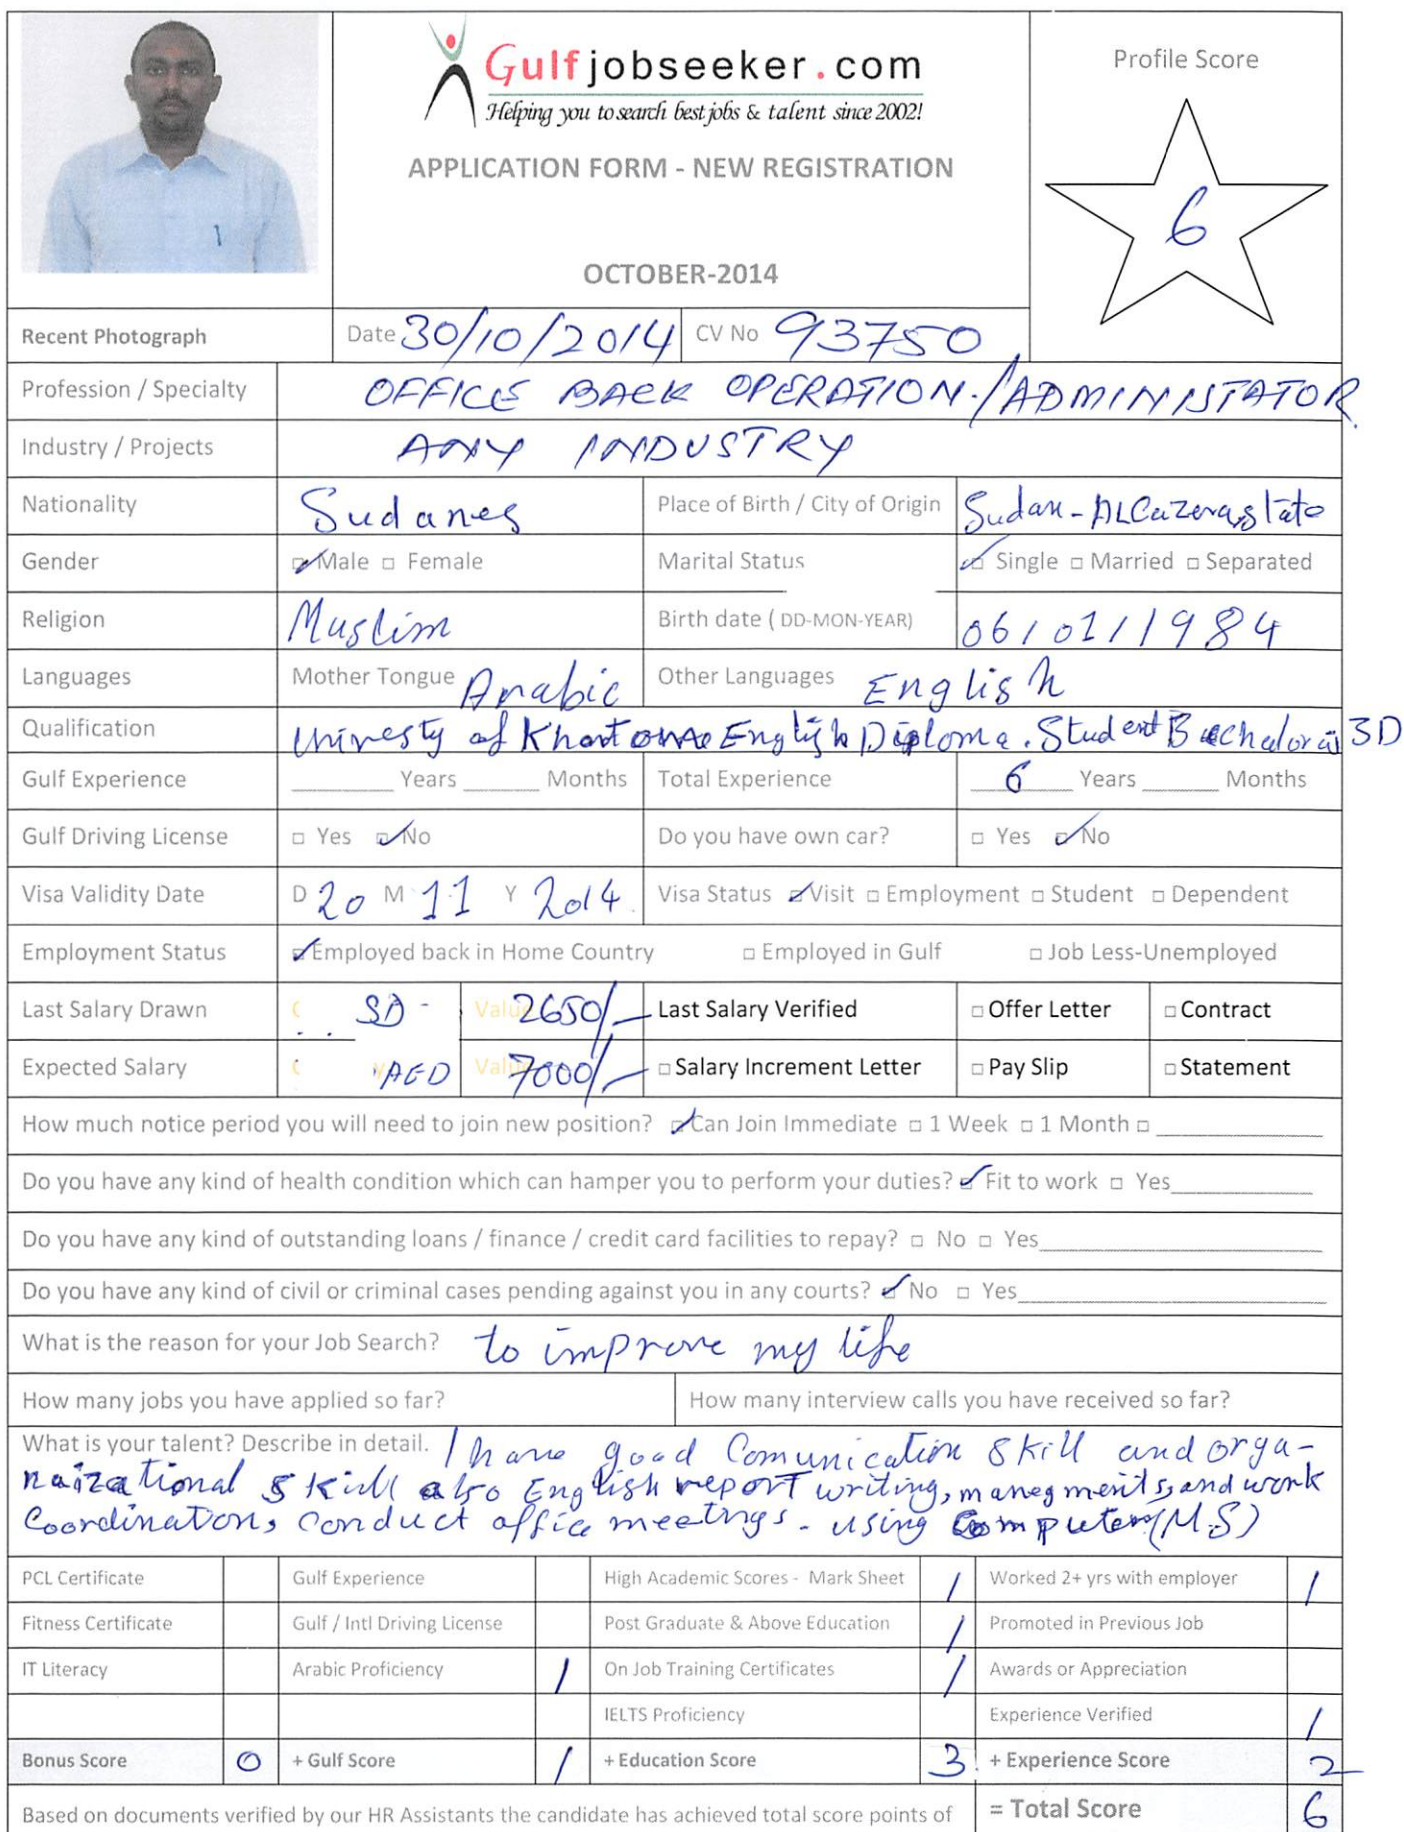 Gulfjobseeker.com
Helping you to search best jobs & talent since 2002!
APPLICATION FORM - NEW REGISTRATION
OCTOBER-2014
Profile Score
6
Recent Photograph
Date 30/10/2014 CV No 93750
Profession / Specialty OFFICE BACK OPERATION./ADMINISTATOR
Industry / Projects ANY INDUSTRY
Nationality Sudanes Place of Birth / City of Origin Sudan-
Gender Male Female Marital Status Single Married Separated
Religion Muslim Birth date ( DD-MON-YEAR) 06/01/1984
Languages Mother Tongue Arabic Other Languages English
Qualification of English Diploma. Student 3D
Gulf Experience Years Months Total Experience 6 Years Months
Gulf Driving License Yes No Do you have own car? Yes No
Visa Validity Date D 20 M 11 Y 2014. Visa Status Visit Employment Student Dependent
Employment Status Employed back in Home Country Employed in Gulf Job Less-Unemployed
Last Salary Drawn SD - 2650/- Last Salary Verified Offer Letter Contract
Expected Salary AED 7000/- Salary Increment Letter Pay Slip Statement
How much notice period you will need to join new position? Can Join Immediate 1 Week 1 Month
Do you have any kind of health condition which can hamper you to perform your duties? Fit to work Yes
Do you have any kind of outstanding loans / finance / credit card facilities to repay? No Yes
Do you have any kind of civil or criminal cases pending against you in any courts? No Yes
What is the reason for your Job Search? to improve my life
How many jobs you have applied so far? How many interview calls you have received so far?
What is your talent? Describe in detail. I have good Comunication Skill and orga-
naizational skill also English report writing, manegments, and work
Coordination, conduct office meetings - using Computer (M.S)
PCL Certificate Gulf Experience High Academic Scores - Mark Sheet / Worked 2+ yrs with employer /
Fitness Certificate Gulf / Intl Driving License Post Graduate & Above Education / Promoted in Previous Job
IT Literacy Arabic Proficiency / On Job Training Certificates / Awards or Appreciation
IELTS Proficiency Experience Verified /
Bonus Score 0 + Gulf Score / + Education Score 3 + Experience Score 2
Based on documents verified by our HR Assistants the candidate has achieved total score points of = Total Score 6